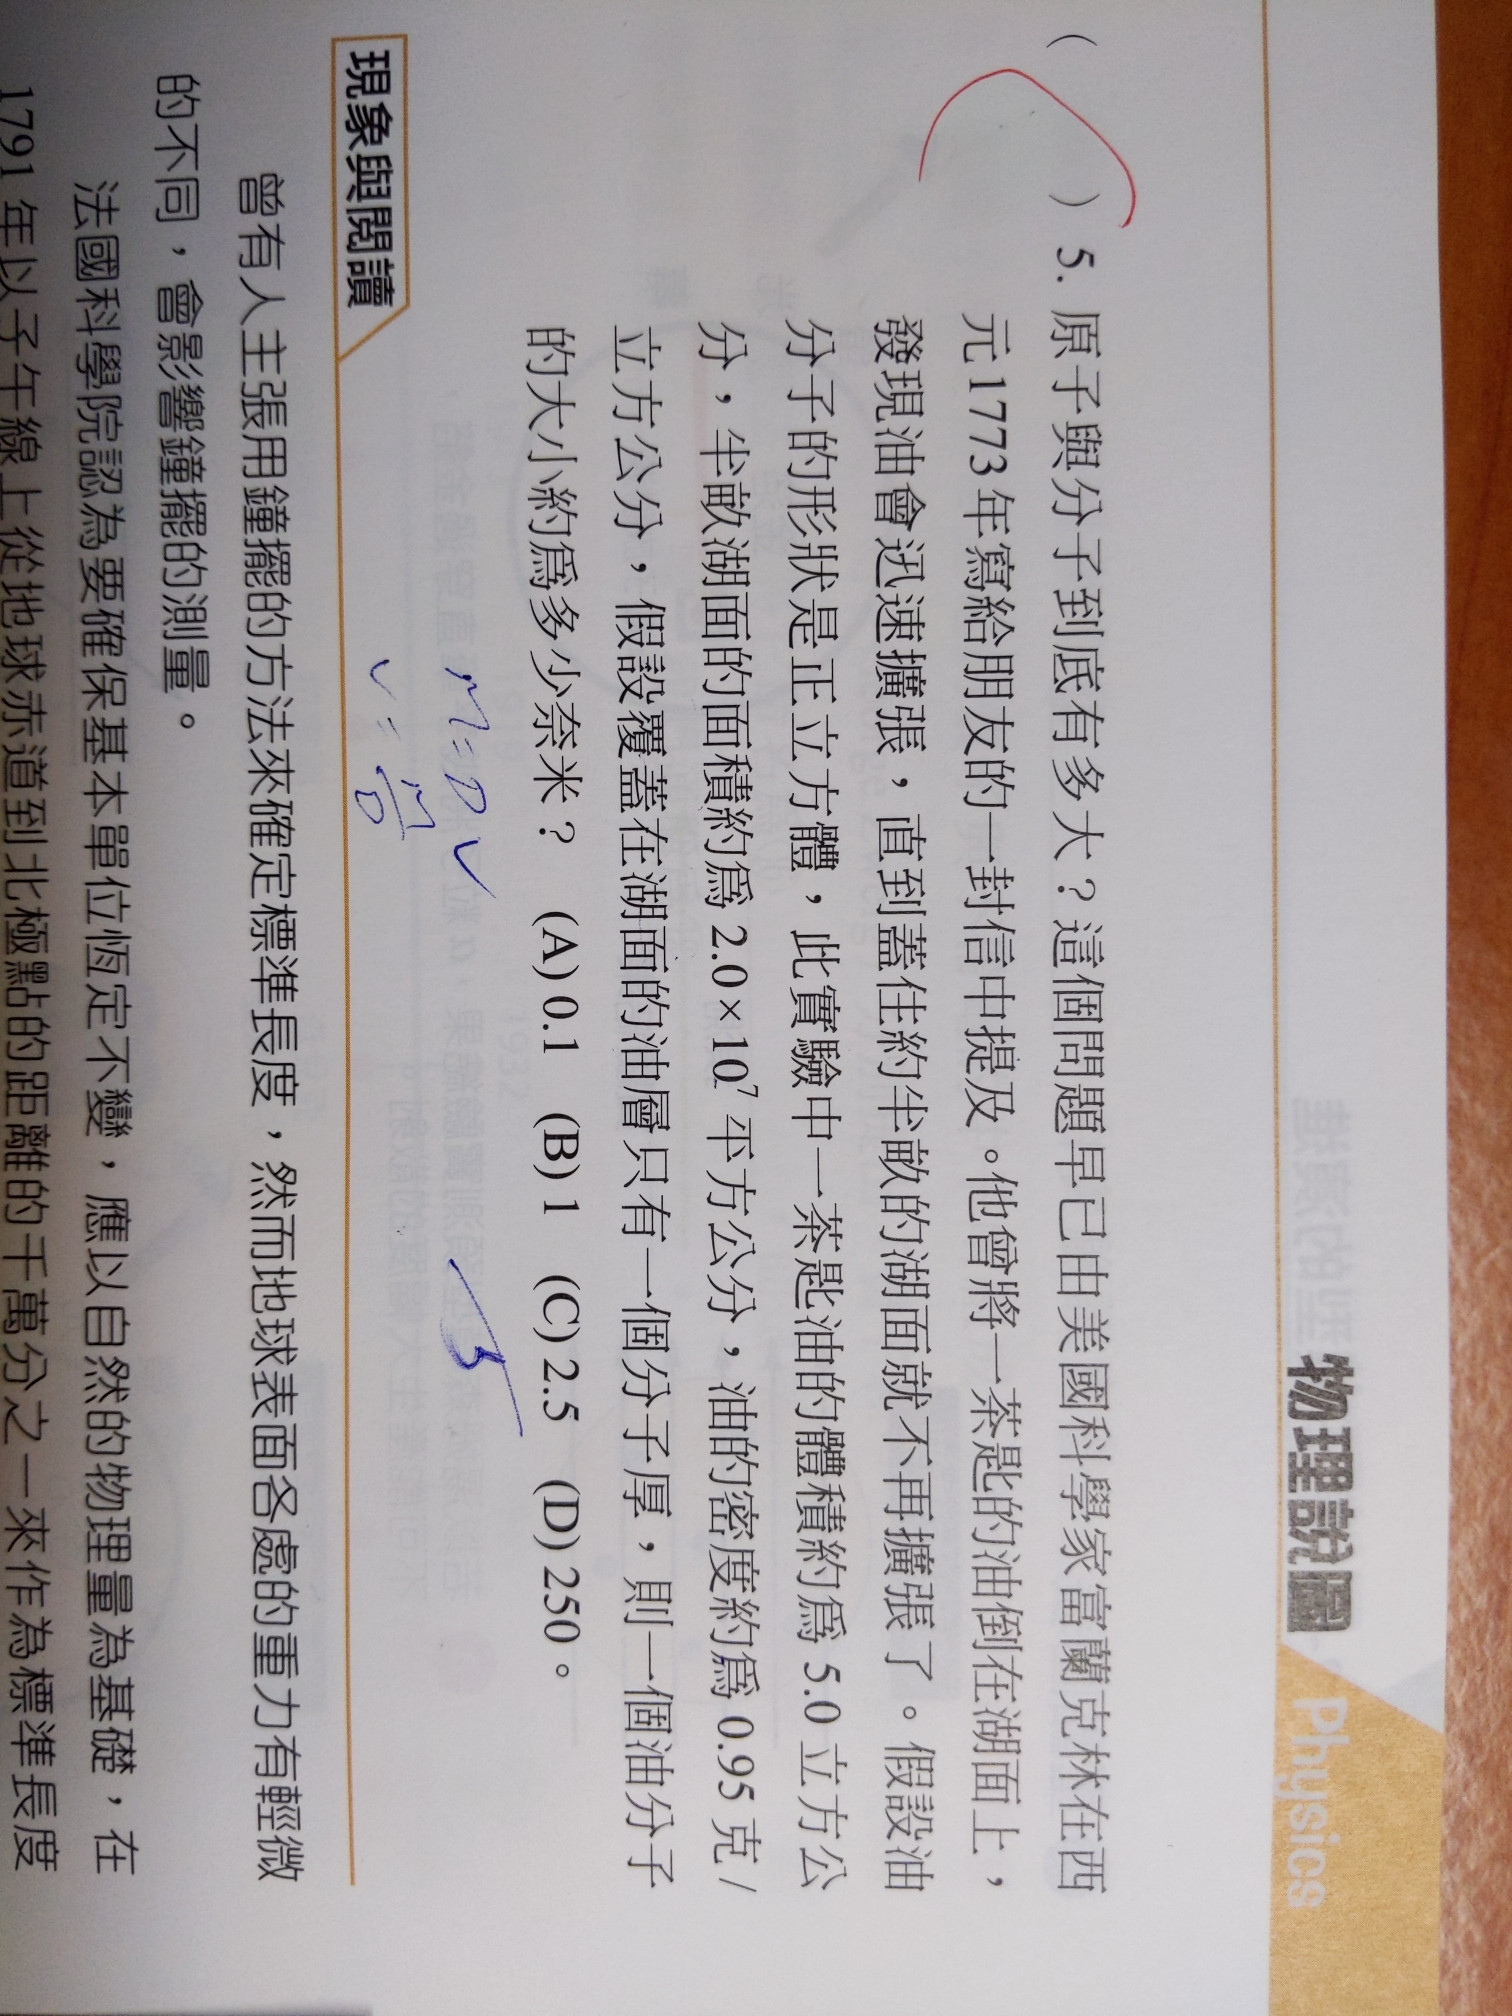 物理說圖
Physics
( ) 5. 原子與分子到底有多大？這個問題早已由美國科學家富蘭克林在西
元1773年寫給朋友的一封信中提及。他曾將一茶匙的油倒在湖面上，
發現油會迅速擴張，直到蓋住約半畝的湖面就不再擴張了。假設油
分子的形狀是正立方體，此實驗中一茶匙油的體積約為 5.0 立方公
分，半畝湖面的面積約為 2.0×10⁷ 平方公分，油的密度約為 0.95 克 /
立方公分，假設覆蓋在湖面的油層只有一個分子厚，則一個油分子
的大小約為多少奈米？ (A) 0.1 (B) 1 (C) 2.5 (D) 250。
M=DV
V=M/D
現象與閱讀
曾有人主張用鐘擺的方法來確定標準長度，然而地球表面各處的重力有輕微
的不同，會影響鐘擺的測量。
法國科學院認為要確保基本單位恆定不變，應以自然的物理量為基礎，在
1791 年以子午線上從地球赤道到北極點的距離的千萬分之一來作為標準長度